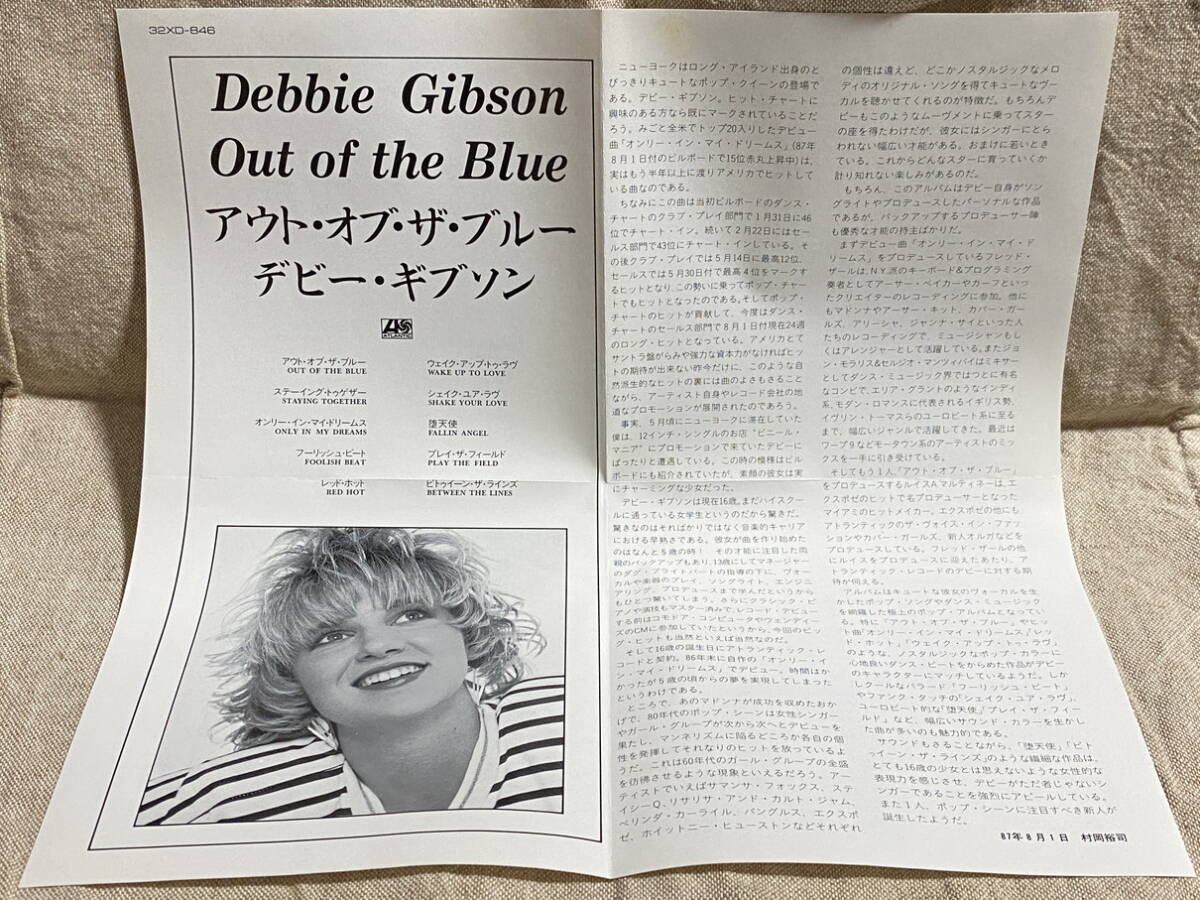 32XD-846
Debbie Gibson
Out of the Blue
アウト・オブ・ザ・ブルー
デビー・ギブソン
ATLANTIC
アウト・オブ・ザ・ブルー
OUT OF THE BLUE
ステーイング・トゥゲザー
STAYING TOGETHER
オンリー・イン・マイ・ドリームス
ONLY IN MY DREAMS
フーリッシュ・ビート
FOOLISH BEAT
レッド・ホット
RED HOT
ウェイク・アップ・トゥ・ラヴ
WAKE UP TO LOVE
シェイク・ユア・ラヴ
SHAKE YOUR LOVE
堕天使
FALLIN ANGEL
プレイ・ザ・フィールド
PLAY THE FIELD
ビトゥイーン・ザ・ラインズ
BETWEEN THE LINES
ニューヨークはロング・アイランド出身のと
びっきりキュートなポップ・クイーンの登場で
ある。デビー・ギブソン。ヒット・チャートに
興味のある方なら既にマークされていることだ
ろう。みごと全米でトップ20入りしたデビュー
曲「オンリー・イン・マイ・ドリームス」(87年
8月1日付のビルボードで15位赤丸上昇中)は、
実はもう半年以上に渡りアメリカでヒットして
いる曲なのである。
ちなみにこの曲は当初ビルボードのダンス・
チャートのクラブ・プレイ部門で1月31日に46
位でチャート・イン。続いて2月22日にはセー
ルス部門で43位にチャート・インしている。そ
の後クラブ・プレイでは5月14日に最高12位、
セールスでは5月30日付で最高4位をマークす
るヒットとなり、この勢いに乗ってポップ・チャー
トでもヒットとなったのである。そしてポップ・
チャートのヒットが貢献して、今度はダンス・
チャートのセールス部門で8月1日付現在24週
のロング・ヒットとなっている。アメリカとて
サントラ盤がらみや強力な資本力がなければヒッ
トの期待が出来ない昨今だけに、このような自
然派生的なヒットの裏には曲のよさもさること
ながら、アーティスト自身やレコード会社の地
道なプロモーションが展開されたのであろう。
事実、5月頃にニューヨークに滞在していた
僕は、12インチ・シングルのお店“ビニール・
マニア”にプロモーションで来ていたデビーに
ばったりと遭遇している。この時の模様はビル
ボードにも紹介されていたが、素顔の彼女は実
にチャーミングな少女だった。
デビー・ギブソンは現在16歳。まだハイスクー
ルに通っている女学生というのだから驚きだ。
驚きなのはそればかりではなく音楽的キャリア
における早熟さである。彼女が曲を作り始めた
のはなんと5歳の時！その才能に注目した両
親のバックアップもあり、13歳にしてマネージャー
のダグ・ブライトバートの指導の下に、ヴォー
カルや楽器のプレイ、ソングライト、エンジニ
アリング、プロデュースまで学んだというから
もひとつ驚いてしまう。さらにクラシック・ピ
アノや演技もマスター済みで、レコード・デビュー
する前はコモドア・コンピュータやウェンディー
ズのCMに参加していたというから、今回のビッ
グ・ヒットも当然といえば当然なのだ。
そして16歳の誕生日にアトランティック・レ
コードと契約。86年末に自作の「オンリー・イ
ン・マイ・ドリームス」でデビュー。時間はか
かったが5歳の頃からの夢を実現してしまった
というわけである。
ところで、あのマドンナが成功を収めたおか
げで、80年代のポップ・シーンは女性シンガー
やガール・グループが次から次へとデビューを
果たし、マンネリズムに陥るどころか各自の個
性を発揮してそれなりのヒットを放っているよ
うだ。これは60年代のガール・グループの全盛
を彷彿させるような現象といえるだろう。アー
ティストでいえばサマンサ・フォックス、ステ
イシーQ、リサリサ・アンド・カルト・ジャム、
ベリンダ・カーライル、バングルス、エクスポ
ゼ、ホイットニー・ヒューストンなどそれぞれ
の個性は違えど、どこかノスタルジックなメロ
ディのオリジナル・ソングを得てキュートなヴォ
ーカルを聴かせてくれるのが特徴だ。もちろんデ
ビーもこのようなムーヴメントに乗ってスター
の座を得たわけだが、彼女にはシンガーにとら
われない幅広い才能がある。おまけに若いとき
ている。これからどんなスターに育っていくか
計り知れない楽しみがあるのだ。
もちろん、このアルバムはデビー自身がソン
グライトやプロデュースしたパーソナルな作品
であるが、バックアップするプロデューサー陣
も優秀な才能の持主ばかりだ。
まずデビュー曲「オンリー・イン・マイ・ド
リームス」をプロデュースしているフレッド・
ザールは、N.Y.派のキーボード&プログラミング
奏者としてアーサー・ベイカーやカーフといっ
たクリエイターのレコーディングに参加。他に
もマドンナやアーサー・キット、カバー・ガー
ルズ、アリーシャ、ジャンナ・サイといった人
たちのレコーディングで、ミュージシャンもし
くはアレンジャーとして活躍している。またジョ
ン・モラリス&セルジオ・マンツィバイはミキサー
としてダンス・ミュージック界ではつとに有名
なコンビで、エリア・グラントのようなインディ
系、モダン・ロマンスに代表されるイギリス勢、
イヴリン・トーマスらのユーロビート系に至る
まで、幅広いジャンルで活躍してきた。最近は
ワープ9などモータウン系のアーティストのミッ
クスを一手に引き受けている。
そしてもう1人、「アウト・オブ・ザ・ブルー」
をプロデュースするルイスA.マルティネーは、エ
クスポゼのヒットで名プロデューサーとなった
マイアミのヒットメイカー。エクスポゼの他にも
アトランティックのザ・ヴォイス・イン・ファッ
ションやカバー・ガールズ、新人オルガなどを
プロデュースしている。フレッド・ザールの他
にルイスをプロデュースに迎えたあたり、ア
トランティック・レコードのデビーに対する期
待が伺える。
アルバムはキュートな彼女のヴォーカルを生
かしたポップ・ソングやダンス・ミュージック
を網羅した極上のポップ・アルバムとなってい
る。特に「アウト・オブ・ザ・ブルー」やヒッ
ト曲「オンリー・イン・マイ・ドリームス」「レッ
ド・ホット」「ウェイク・アップ・トゥ・ラヴ」
のような、ノスタルジックなポップ・カラーに
心地良いダンス・ビートをからめた作品がデビー
のキャラクターにマッチしているようだ。しか
しクールなバラード「フーリッシュ・ビート」
やファンク・タッチの「シェイク・ユア・ラヴ」、
ユーロビート的な「堕天使」「プレイ・ザ・フィー
ルド」など、幅広いサウンド・カラーを生かし
た曲が多いのも魅力的である。
サウンドもさることながら、「堕天使」「ビト
ゥイーン・ザ・ラインズ」のような繊細な作品は、
とても16歳の少女とは思えないような女性的な
表現力を感じさせ、デビーがただ者じゃないシ
ンガーであることを強烈にアピールしている。
また1人、ポップ・シーンに注目すべき新人が
誕生したようだ。
87年8月1日 村岡裕司